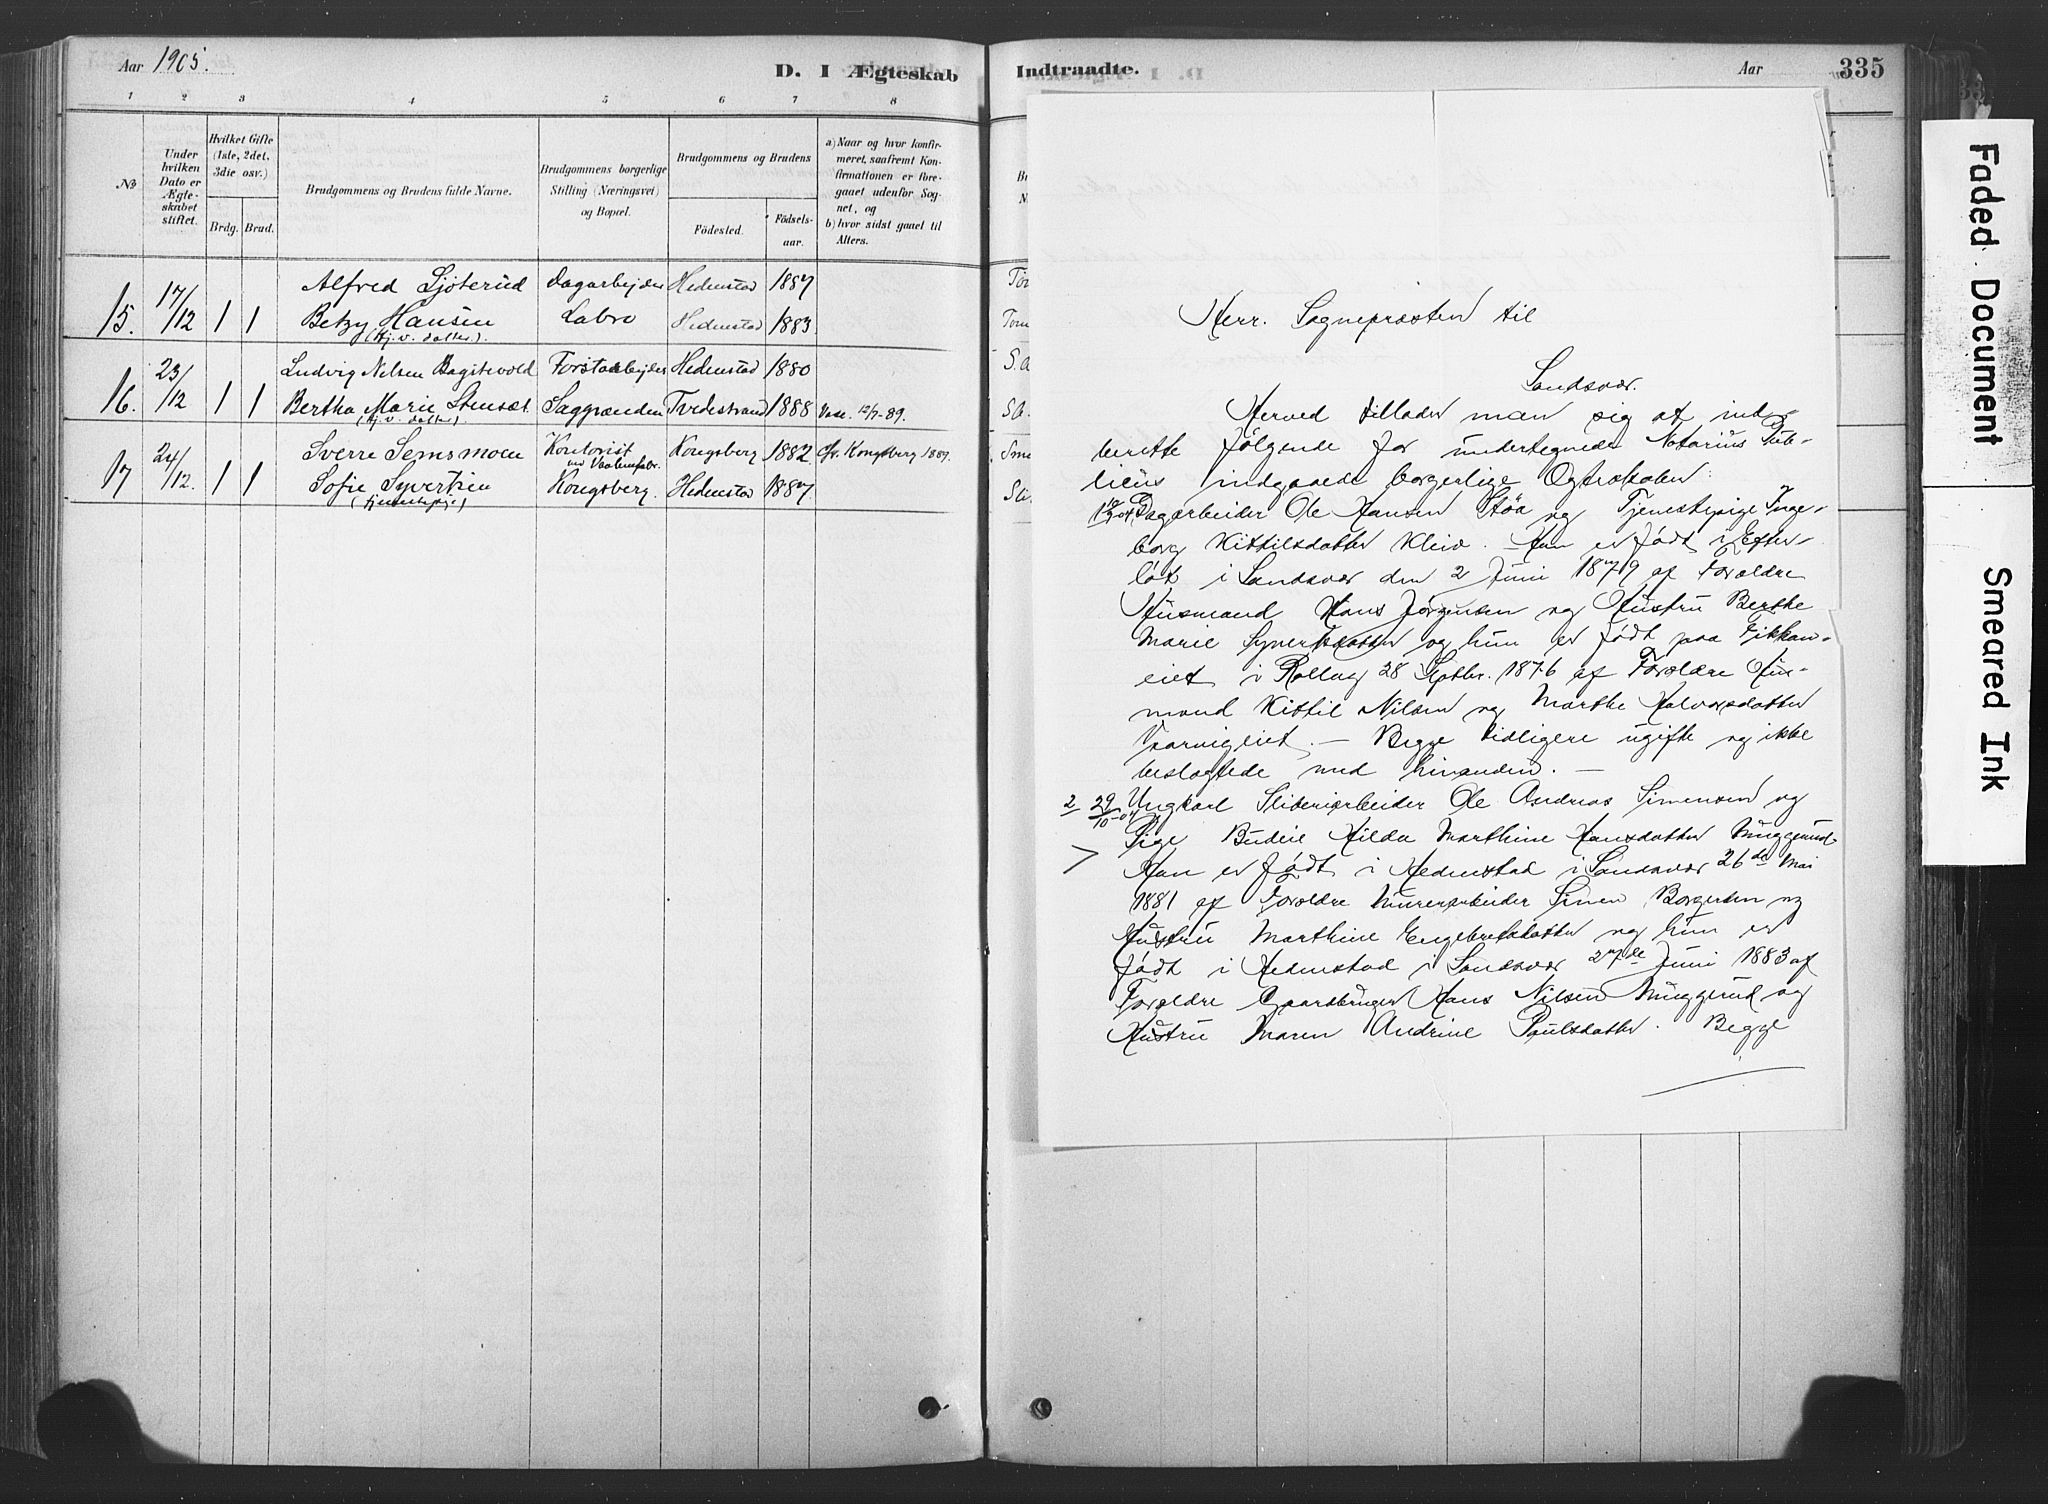 Aar 1905.
D. I Ægteskab
1 2 3 4 5 6 7 8
No
Under hvilken Dato er Ægteskabet stiftet.
Hvilket Gifte (1ste, 2det, 3die osv.)
Brdg. Brud.
Brudgommens og Brudens fulde Navne.
Brudgommens borgerlige Stilling (Næringsvei) og Bopæl.
Brudgommens og Brudens
Födested.
Födselsaar.
a) Naar og hvor konfirmeret, saafremt Konfirmationen er foregaaet udenfor Sognet, og
b) hvor sidst gaaet til Alters.
15. 17/12 1 1 Alfred Ljøterud Dagarbejder Hedenstad 1887
Betzy Hansen Labro Hedenstad 1883
(Hj.v. datter.)
16. 23/12 1 1 Ludvig Nilsen Bagstevold Forstarbejder Hedenstad 1880
Bertha Marie Stensæt. Saggrenden Tvedestrand 1888 Vac. 12/7-89.
(Hj.v. datter)
17 24/12. 1 1 Sverre Semsmoen Kontorist Kongsberg 1882 Kongsberg 1889.
ved Vaabenfabr.
Sofie Syvertsen Kongsberg. Hedenstad 1887
(tjenestepige)
Indtraadte.
Aar 335
Herr. Sognepræsten til
Sandsvær.
Herved tillader man sig at ind-
berette følgende for undertegnede Notarius Pub-
licus indgaaede borgerlige Ægteskaber:
Dagarbeider Ole Hansen Støa og Tjenestepige Inge-
borg Kittilsdatter Kleiv. – Han er født i Efte-
løt i Sandsvær den 2 Juni 1879 af Forældre
Husmand Hans Jørgensen og Hustru Berthe
Marie Syvertsdatter og hun er født paa Fikkan-
eiet i Rollag 28 Septbr. 1876 af Forældre Hus-
mand Kittil Nilsen og Marthe Halvorsdatter
Vaarvigeiet. – Begge tidligere ugifte og ikke
beslægtede med hinanden. –
2 29/10-04 Ungkarl Sliberiarbeider Ole Andreas Simensen og
Pige Budeie Hilda Marthine Hansdatter Muggerud
Han er født i Hedenstad i Sandsvær 26de Mai
1881 af Forældre Murerarbeider Simen Borgersen og
Hustru Marthine Engebretsdatter og hun er
født i Hedenstad i Sandsvær 27de Juni 1883 af
Forældre Gaardbruger Hans Nilsen Muggerud og
Hustru Maren Andrine Paulsdatter. Begge
Faded Document
Smeared Ink